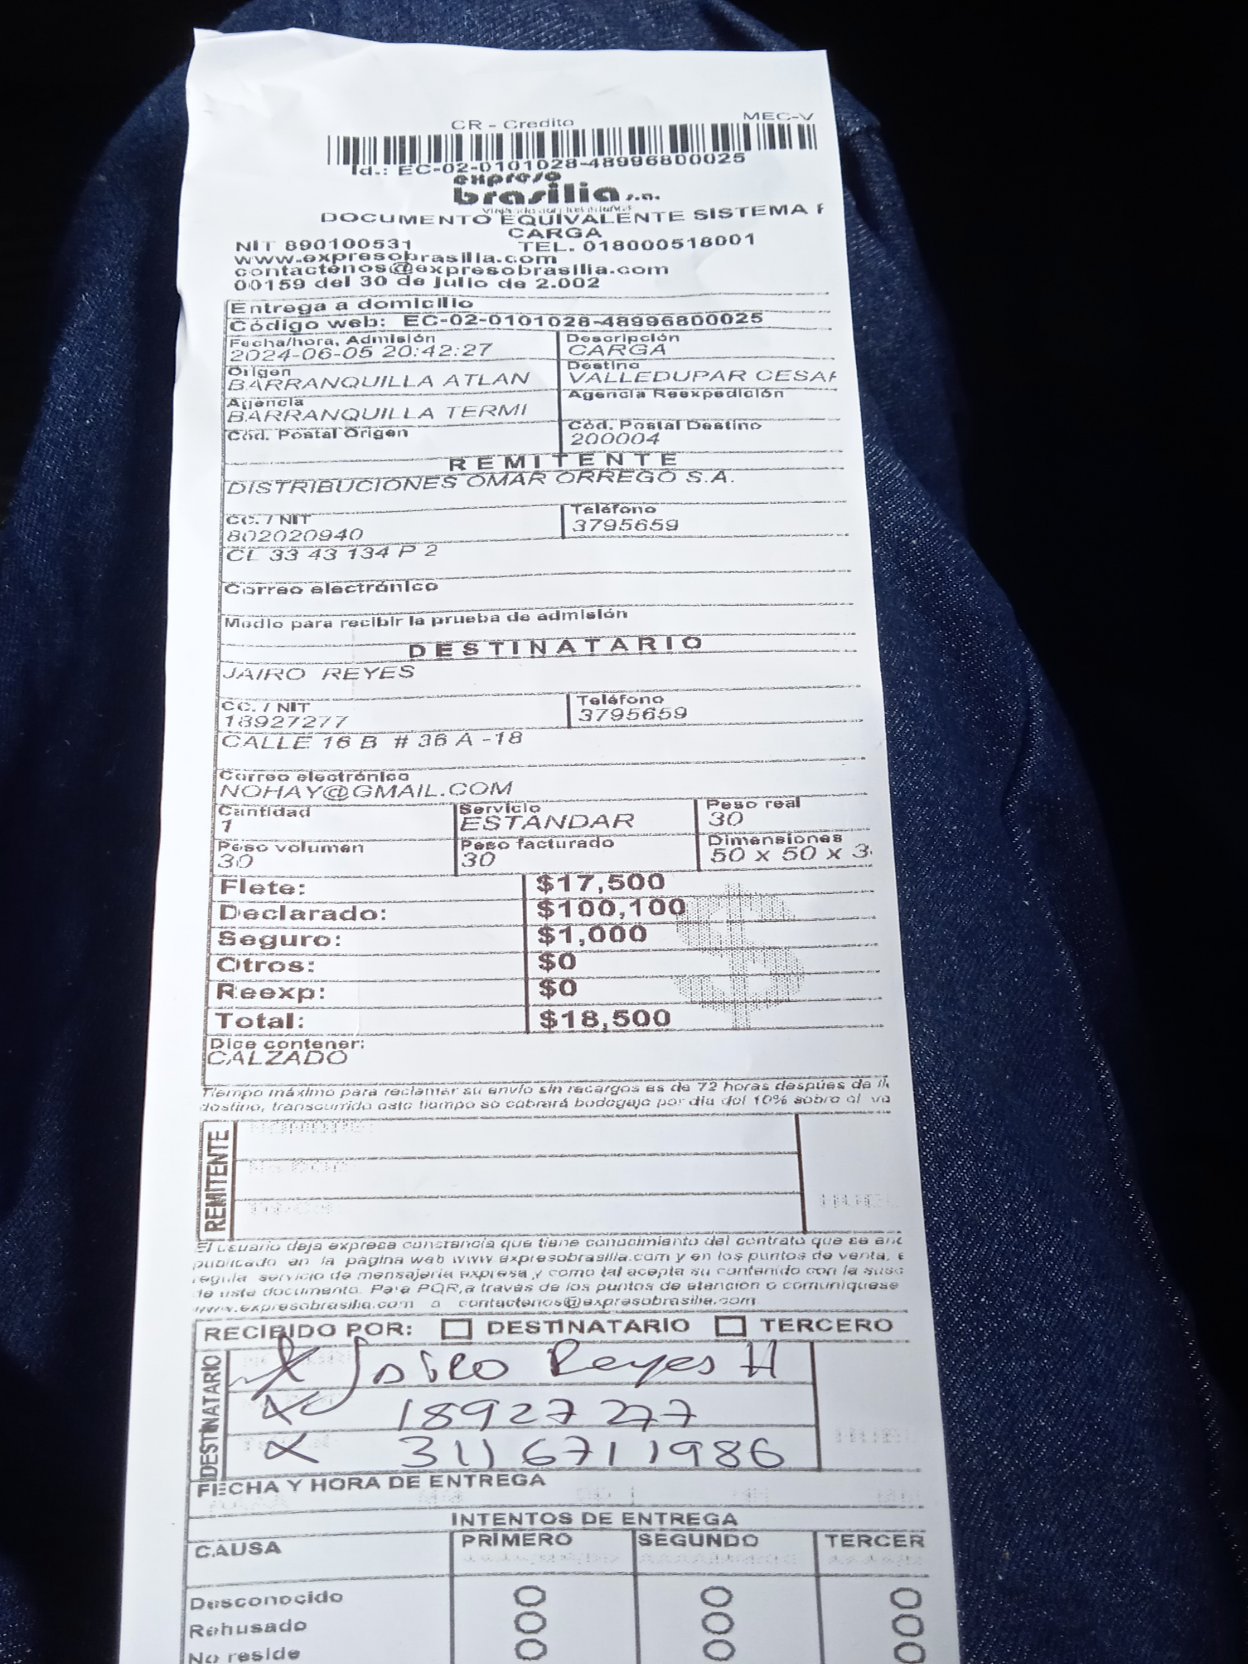 CR - Credito MEC-V
Id.: EC-02-0101028-48996800025
expreso
brasilia s.a.
DOCUMENTO EQUIVALENTE SISTEMA
CARGA
NIT 890100531 TEL. 018000518001
www.expresobrasilia.com
contactenos@expresobrasilia.com
00159 del 30 de julio de 2.002
Entrega a domicilio
Código web: EC-02-0101028-48996800025
Fecha/hora, Admisión Descripción
2024-06-05 20:42:27 CARGA
Origen Destino
BARRANQUILLA ATLAN VALLEDUPAR CESAR
Agencia Agencia Reexpedición
BARRANQUILLA TERMI
Cód. Postal Origen Cód. Postal Destino
200004
REMITENTE
DISTRIBUCIONES OMAR ORREGO S.A.
CC. / NIT Teléfono
802020940 3795659
CL 33 43 134 P 2
Correo electrónico
Medio para recibir la prueba de admisión
DESTINATARIO
JAIRO REYES
CC. / NIT Teléfono
18927277 3795659
CALLE 16 B # 36 A -18
Correo electrónico
NOHAY@GMAIL.COM
Cantidad Servicio Peso real
1 ESTANDAR 30
Peso volumen Peso facturado Dimensiones
30 30 50 x 50 x 3
Flete: $17,500
Declarado: $100,100
Seguro: $1,000
Otros: $0
Reexp: $0
Total: $18,500
Dice contener:
CALZADO
Tiempo máximo para reclamar su envío sin recargos es de 72 horas después de
destino, transcurrido este tiempo se cobrará bodegaje por día del 10% sobre el va
REMITENTE
El usuario deja expresa constancia que tiene conocimiento del contrato que se enc
publicado en la pagina web www expresobrasilia.com y en los puntos de venta,
regula servicio de mensajería expresa y como tal acepta su contenido con la susc
de este documento. Para PQR,a través de los puntos de atención o comuniquese
www.expresobrasilia.com a contactenos@expresobrasilia.com
RECIBIDO POR: DESTINATARIO TERCERO
DESTINATARIO
x Jairo Reyes H
x 18927277
x 3116711986
FECHA Y HORA DE ENTREGA
INTENTOS DE ENTREGA
CAUSA PRIMERO SEGUNDO TERCER
Desconocido
Rehusado
No reside